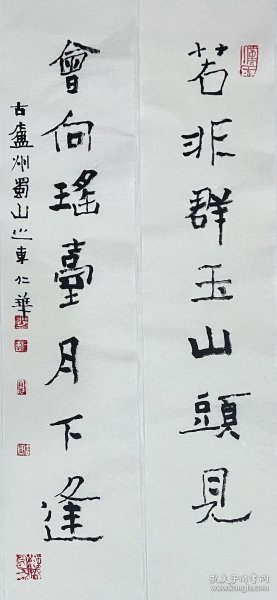 若非群玉山頭見
會向瑤臺月下逢
古廬州蜀山山東仁華
孔夫子旧书网